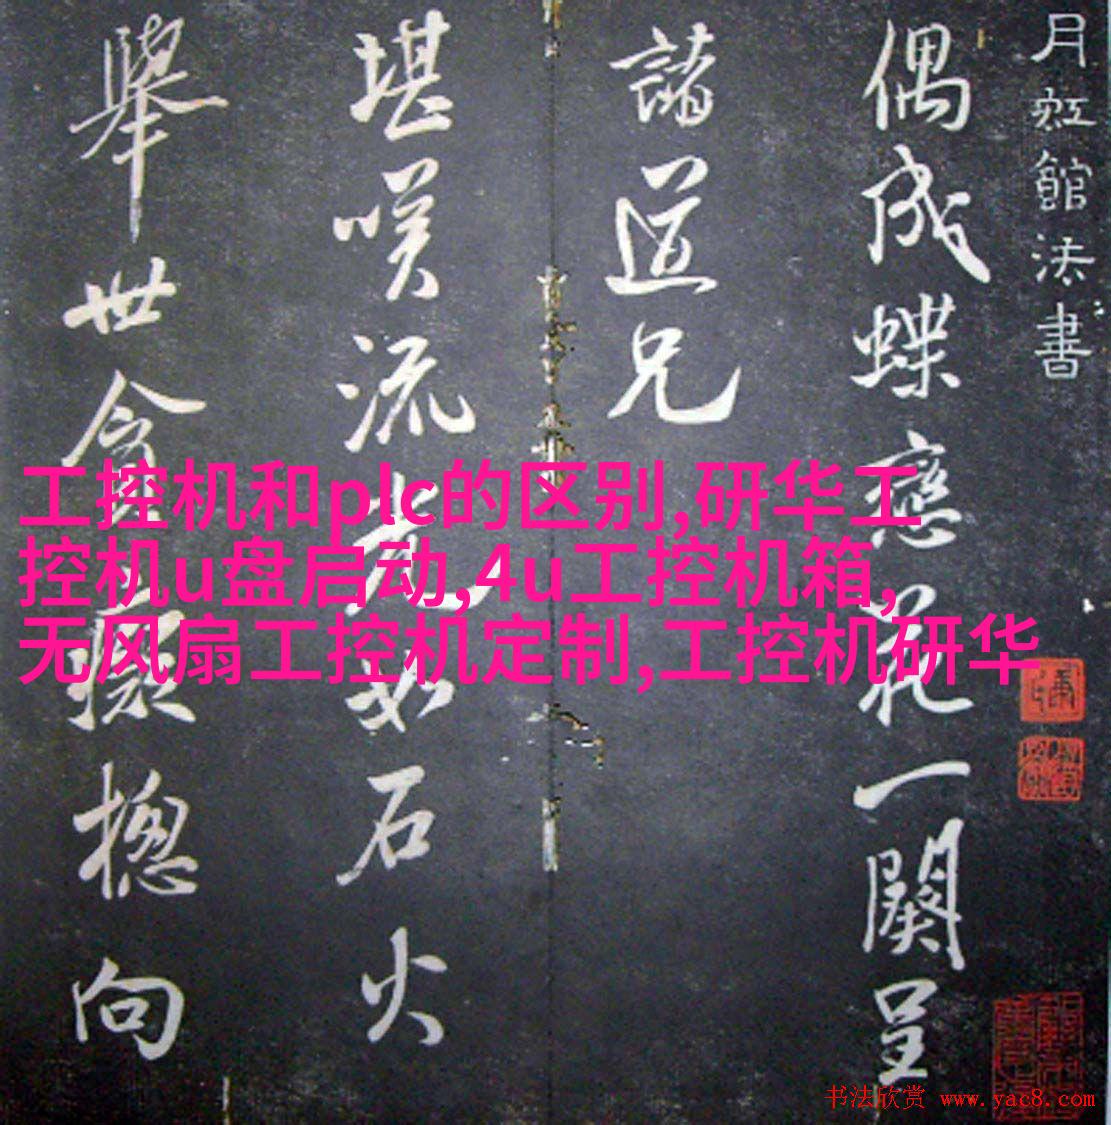 月虹館法書
偶成蝶戀花一闋呈
諸道兄
堪咲流光如石火
舉世貪癡摠向
工控机和plc的区别,研华工
控机u盘启动,4u工控机箱,
无风扇工控机定制,工控机研华
书法欣赏 www.yac8.com